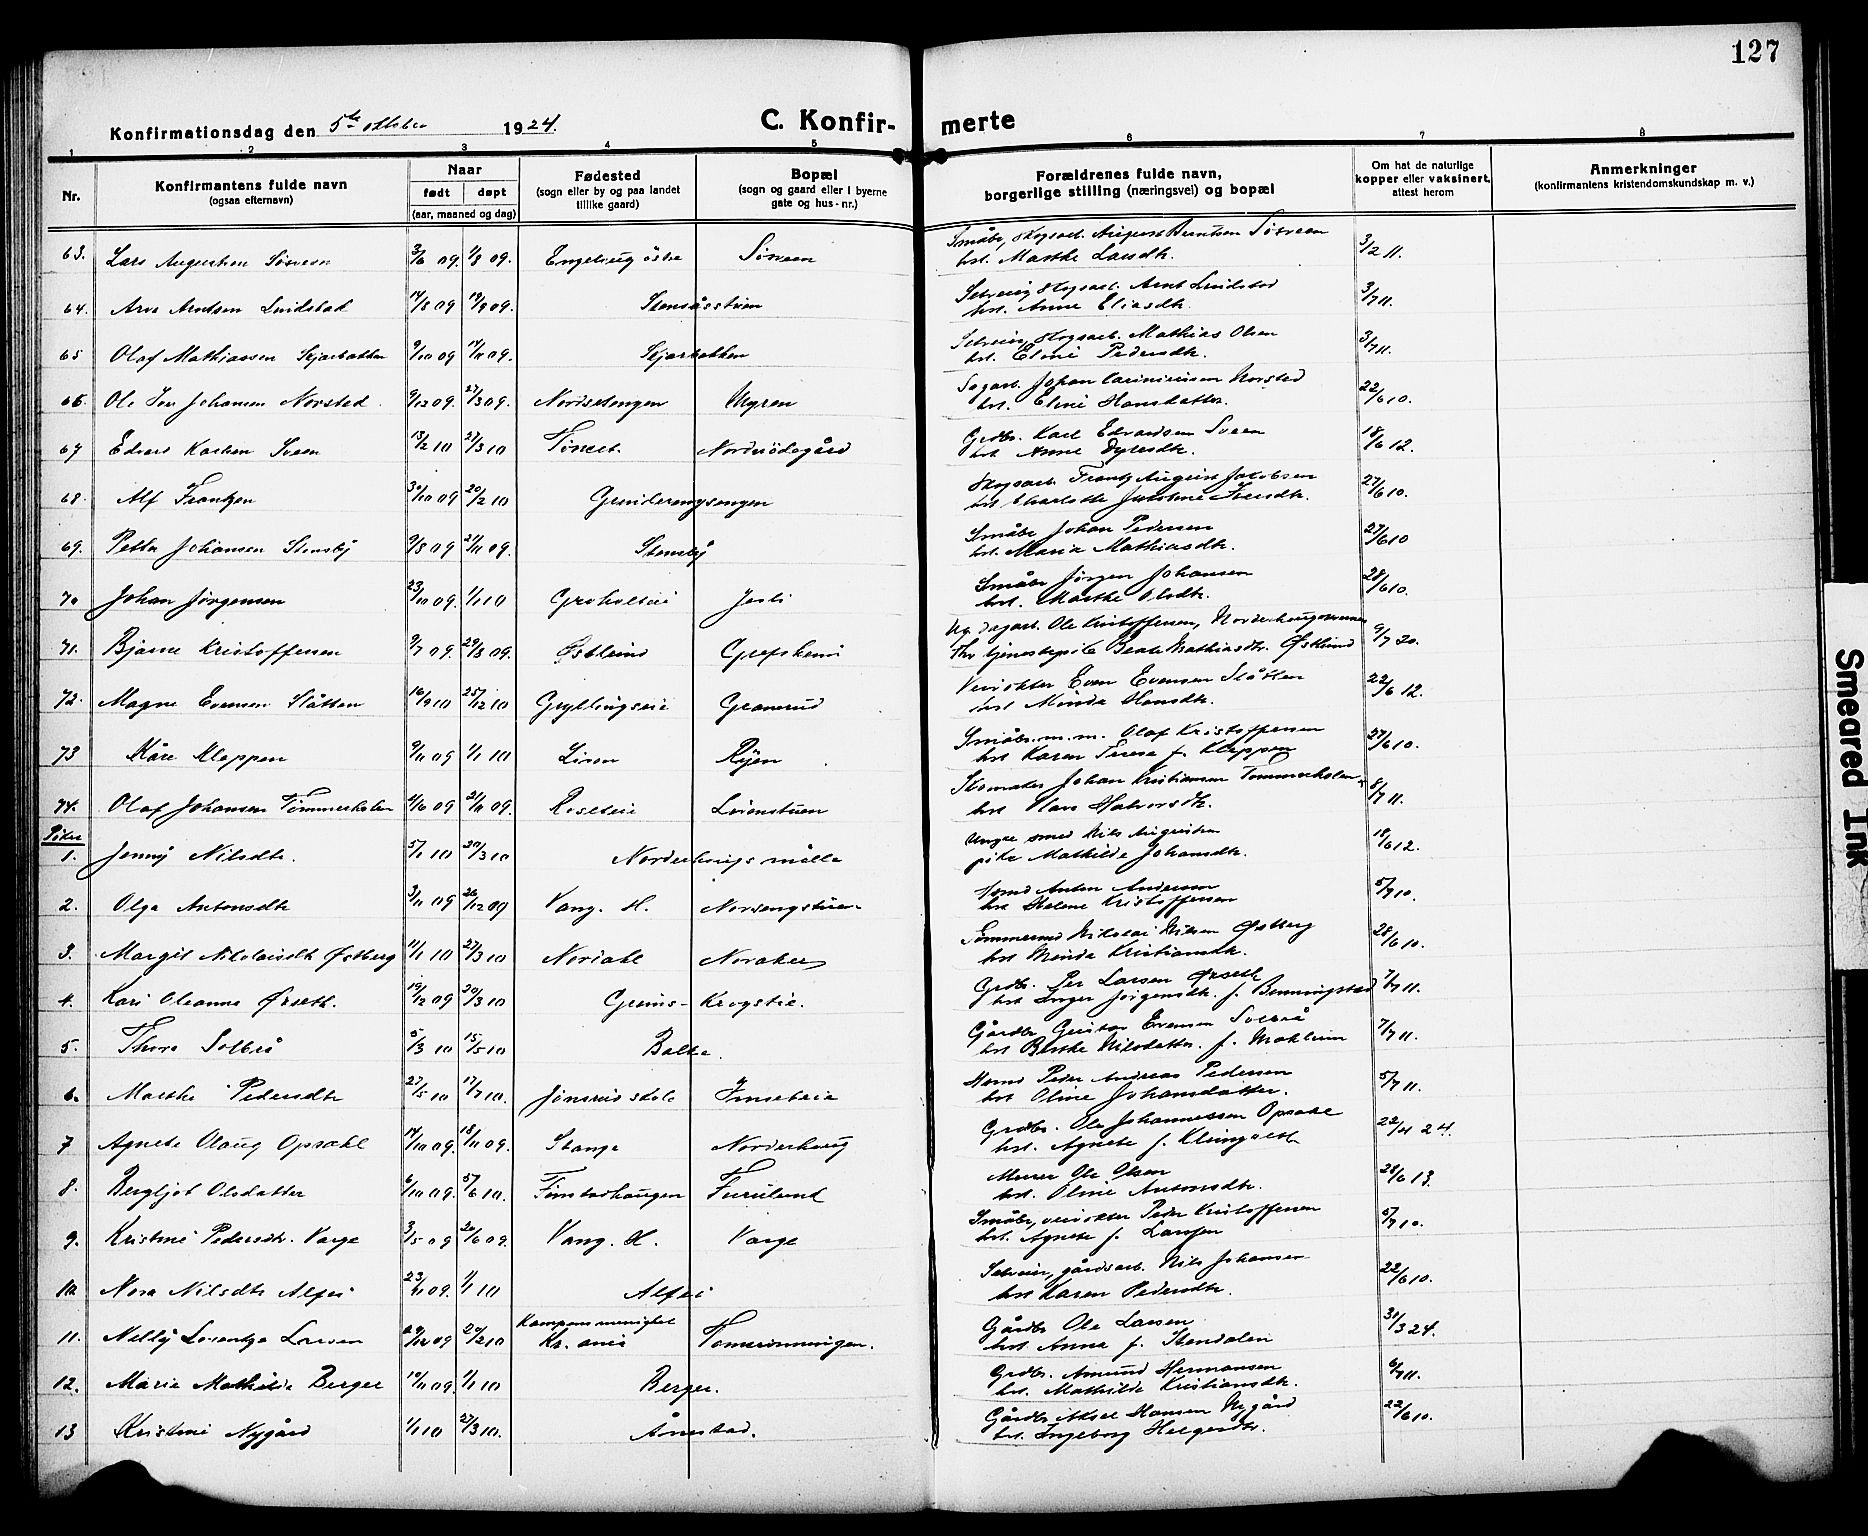 127
Konfirmationsdag den 5te oktober 1924.
C. Konfir- merte
1 2 3 4 5 6 7 8
Nr.
Konfirmantens fulde navn
(ogsaa efternavn)
Naar
født døpt
(aar, maaned og dag)
Fødested
(sogn eller by og paa landet
tillike gaard)
Bopæl
(sogn og gaard eller i byerne
gate og hus-nr.)
Forældrenes fulde navn,
borgerlige stilling (næringsvei) og bopæl
Om hat de naturlige
kopper eller vaksinert,
attest herom
Anmerkninger
(konfirmantens kristendomskundskap m. v.)
63. Lars Augustsen Sösveen 3/6 09. 1/8 09. Engehaug östre Sösveen Småbr, skogsarb. August Berntsen Sösveen 3/2 11.
hst. Marthe Larsdtr.
64. Arne Arntsen Lindstad 14/8 09 19/9 09. Stensåsstuen Selveier, skogsarb. Arnt Lindstad 3/7 11.
hst. Anne Eliasdtr.
65 Olaf Mathiassen Skjærbakken 9/10 09 14/11 09. Skjærbakken Selveier, skogsarb. Mathias Olsen 3/7 11.
hst. Eline Pedersdtr.
66. Ole Johansen Norstad. 9/12 09. 27/3 09. Nordstengen Myren Sagarb. Johan Norstad 22/6 10.
hst. Eline Hansdatter.
67 Edvard Karlsen Sveen 13/2 10 27/3 10 Nordrödegård Grdbr. Karl Edvardsen Sveen 18/6 12.
hst Anne
68. Alf Frantzen 30/10 09 20/2 10 Grunderengsengen Skogsarb. Frantz August Jakobsen 27/6 10.
hst Charlotte Iversdtr.
69. Petter Johansen Stensby 9/8 09 21/11 09. Stensby Småbr Johan Pedersen 27/6 10
hst. Maria Mathiasdtr.
70 Johan Jörgensen 23/10 09. 1/1 10 Groholteie Jesli Småbr Jörgen Johansen 28/6 10.
hst. Marthe Olsdtr.
71. Bjarne Kristoffersen 9/7 09. 29/8 09. Østlund Grefsheim Ug. dagarb. Ole Kristoffersen, 9/7 20.
tjenestepike Beate Mathiasdtr. Østlund
72. Magne Evensen Slåtten 16/9 10 25/12 10 Gryllingseie Granerud Even Evensen Slåtten 22/6 12.
hst Minda Hansdtr.
73 Kåre Kleppen 9/11 09 1/1 10 Lison Ryen Småbr. m. m. Olaf Kristoffersen 27/6 10.
hst Karen Terese f. Kleppen
74. Olaf Johansen Tömmerholen 4/10 09 21/11 09. Roseteie Lörenstuen Skomaker Johan Kristiansen Tommerholen 8/7 11.
hst Halvorsdtr.
Piker
1. Jenny Nilsdtr. 5/1 10 20/3 10 Norderhougs mölle Ungk. smed Nils Augustsen 18/6 12.
pike Mathilde Johansdtr.
2. Olga Antonsdtr 3/11 09 26/12 09 Vang. H. Norsengstuen Anton Andersen 5/9 10.
hst Helene Kristoffersen
3. Margit Nikolaisdtr Østberg 11/1 10 27/3 10 Noraker Nikolai Nilsen Østberg 28/6 10.
hst Minda Kristiansdtr.
4. Kari Oleanna Ørseth. 19/12 09 20/3 10 Greins- Krogstie. Grdbr. Per Larsen Ørseth 7/7 11.
hst Inger Jörgensdtr. f. Benningstad
5. Thora Solbrå 5/3 10 15/5 10 Balke. Gårdbr Gustav Evensen Solbrå 7/7 11.
hst Berthe Nilsdatter. f. Mohlum
6. Marthe Pedersdtr 27/5 10 17/7 10. Jönsrudstole Imsebeie Peder Andreas Pedersen 5/7 11.
hst Oline Johansdatter.
7 Agnete Olaug Opsahl 14/10 09. 18/11 09. Stange Norderhoug Grdbr. Ole Johannessen Opsahl 22/4 24.
hst. Agnete f.
8. Bergljot Olsdatter 6/10 09. 5/6 10. Finstadhaugen Furulund Murer Ole Olsen 28/6 13.
hst. Oline Antonsdtr.
9. Kristine Pedersdtr. Varge 3/5 09 20/6 09. Vang. H. Varge Småbr, Peder Kristoffersen 5/9 10.
hst. Agnete f. Larsson
10. Nora Nilsdtr Alfei 23/11 09. 1/1 10 Alfei Selveier, gårdsarb. Nils Johansen 22/6 10.
hst Karen Pedersdtr.
11. Nelly Lorentze Larsen 29/12 09 20/2 10 Kampens menighet
Kr.ania Gårdbr Ole Larsen 31/3 24.
hst Anna f. Stendalen
12. Marie Mathilde Berger 10/11 09. 1/1 10 Berger. Grdbr. Amund Hermansen 6/7 11.
hst. Mathilde Kristiansdtr.
13 Kristine Nygård 1/1 10 27/3 10. Ånestad. Gårdbr Aksel Hansen Nygård 22/6 10.
hst. Ingeborg Helgesdtr.
Smeared Ink